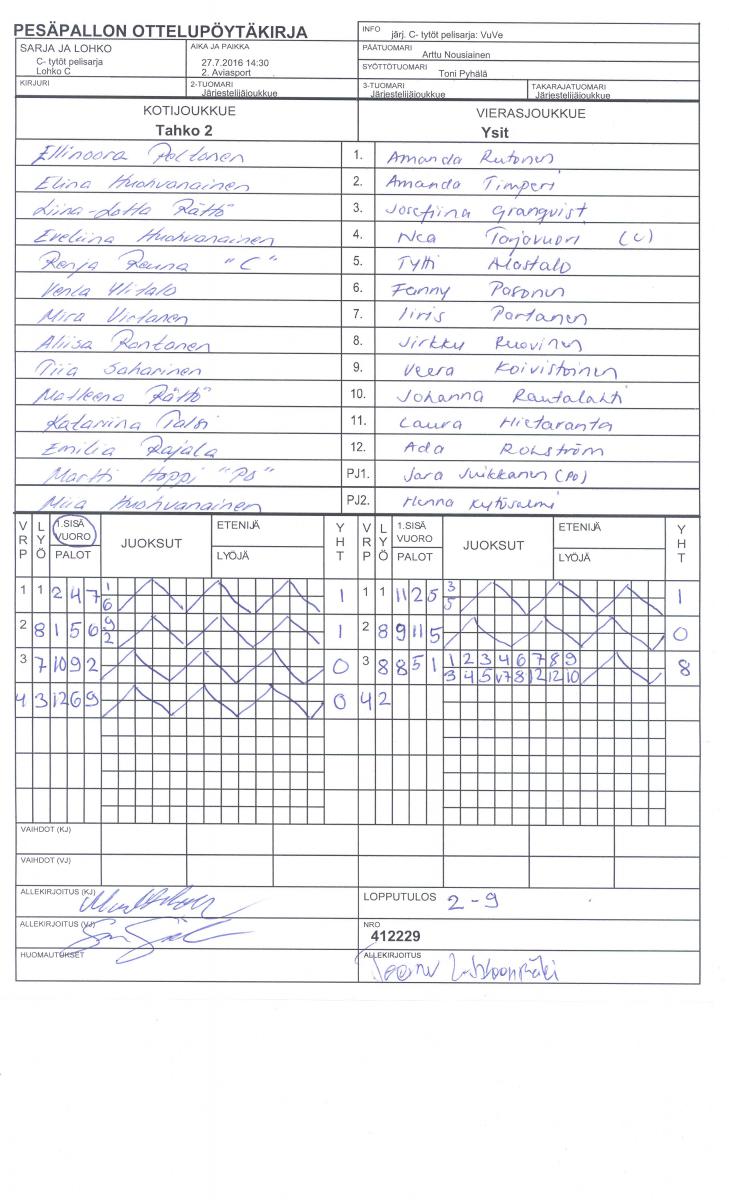 PESÄPALLON OTTELUPÖYTÄKIRJA
INFO järj. C- tytöt pelisarja: VuVe
SARJA JA LOHKO
C- tytöt pelisarja
Lohko C
AIKA JA PAIKKA
27.7.2016 14:30
2. Aviasport
PÄÄTUOMARI
Arttu Nousiainen
SYÖTTÖTUOMARI
Toni Pyhälä
KIRJURI
2-TUOMARI
Järjestelijäjoukkue
3-TUOMARI
Järjestelijäjoukkue
TAKARAJATUOMARI
Järjestelijäjoukkue
KOTIJOUKKUE
Tahko 2
VIERASJOUKKUE
Ysit
Ellinoora Peltonen 1. Amanda Rutonen
Elina Huohvanainen 2. Amanda Timperi
Liina-Lotta Rättö 3. Josefiina Granqvist
Eveliina Huohvanainen 4. Nea Torjovuori (C)
Ronja Reuna "C" 5. Tytti Alastalo
Venla Ylitalo 6. Fanny Posonen
Mira Virtanen 7. Iiris Partanen
Aliisa Rantanen 8. Jirkku Ruovinen
Tiia Saharinen 9. Veera Koivistoinen
Matleena Rättö 10. Johanna Rautalahti
Katariina Talsi 11. Laura Hietaranta
Emilia Rajala 12. Ada Rohström
Martti Hoppi "PJ" PJ1. Jara Juikkanen (PJ)
Miia Huohvanainen PJ2. Henna Kytösalmi
VRP LYÖ 1.SISÄ VUORO PALOT JUOKSUT ETENIJÄ LYÖJÄ YHT VRP LYÖ 1.SISÄ VUORO PALOT JUOKSUT ETENIJÄ LYÖJÄ YHT
1 1 2 4 7 1/6 1 1 1 11 2 5 3/5 1
2 8 1 5 6 9/2 1 2 8 9 11 5 0
3 7 10 9 2 0 3 8 8 5 1 1 2 3 4 6 7 8 9 8
3 4 5 7 8 12 12 10
4 3 12 6 9 0 4 2
VAIHDOT (KJ)
VAIHDOT (VJ)
ALLEKIRJOITUS (KJ)
LOPPUTULOS 2 - 9
ALLEKIRJOITUS (VJ)
NRO
412229
HUOMAUTUKSET
ALLEKIRJOITUS